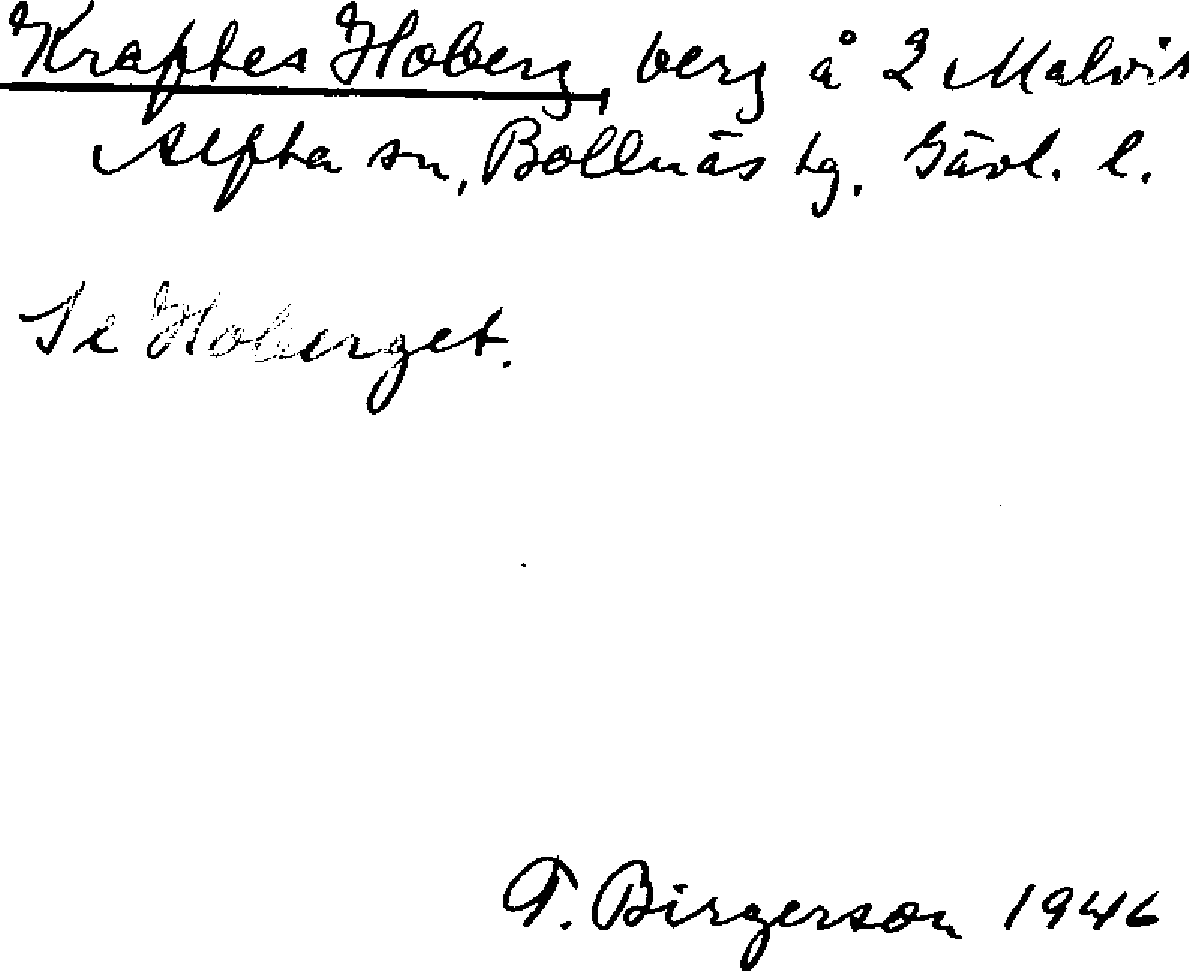 Kraftes Hoberg, berg å 2 Malvis
Alfta sn, Bollnäs tg. Gävl. l.
Se Hoberget.
T. Birgerson 1946